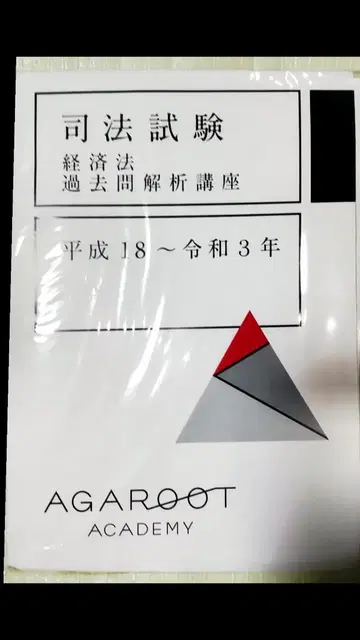 司法試験
経済法
過去問解析講座
平成18～令和3年
AGAROOT
ACADEMY